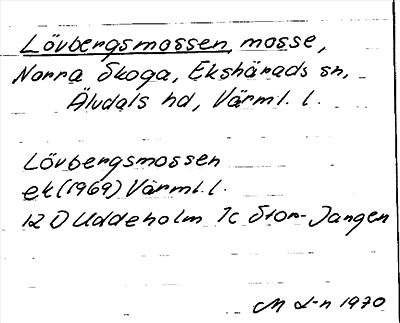 Lövbergsmossen, mosse,
Norra Skoga, Ekshärads sn,
Älvdals hd, Värml. l.
Lövbergsmossen
ek (1969) Värml. l.
12 D Uddeholm 7c Stor-Jangen
M L-n 1970